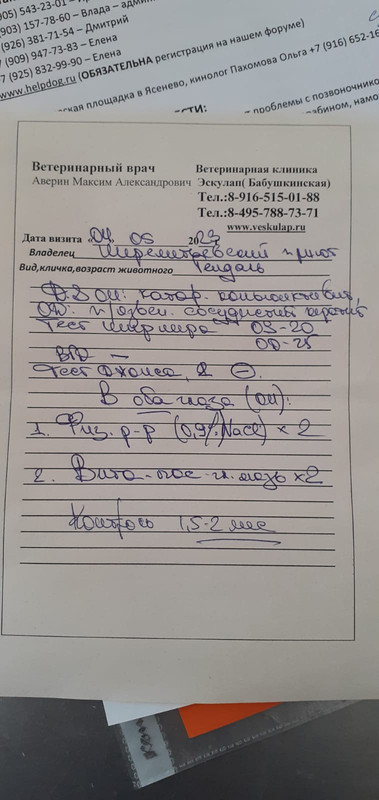 905) 543-23-01 –
903) 157-78-60 – Влада – адми
(926) 381-71-54 – Дмитрий
7 (909) 947-73-83 – Елена
7 (925) 832-99-90 – Елена
www.helpdog.ru (ОБЯЗАТЕЛЬНА регистрация на нашем форуме)
ская площадка в Ясенево, кинолог Пахомова Ольга +7 (916) 652-16
проблемы с позвоночнико
Ветеринарный врач
Аверин Максим Александрович
Ветеринарная клиника
Эскулап( Бабушкинская)
Тел.:8-916-515-01-88
Тел.:8-495-788-73-71
www.veskulap.ru
Дата визита «04» 05 2023
Владелец Шереметьевский приют
Вид,кличка,возраст животного Гендаль
Д.З ОИ: катар. конъюнктивит,
OD: сосудистый кератит
Тест Ширмера OS-20
OD-25
ВГД —
Тест Джонса, 2 ⊖.
В оба глаза (OU):
1. Физ. р-р (0,9% NaCl) x 2
2. Вита-пос гл. мазь x2
Контроль 1,5-2 мес